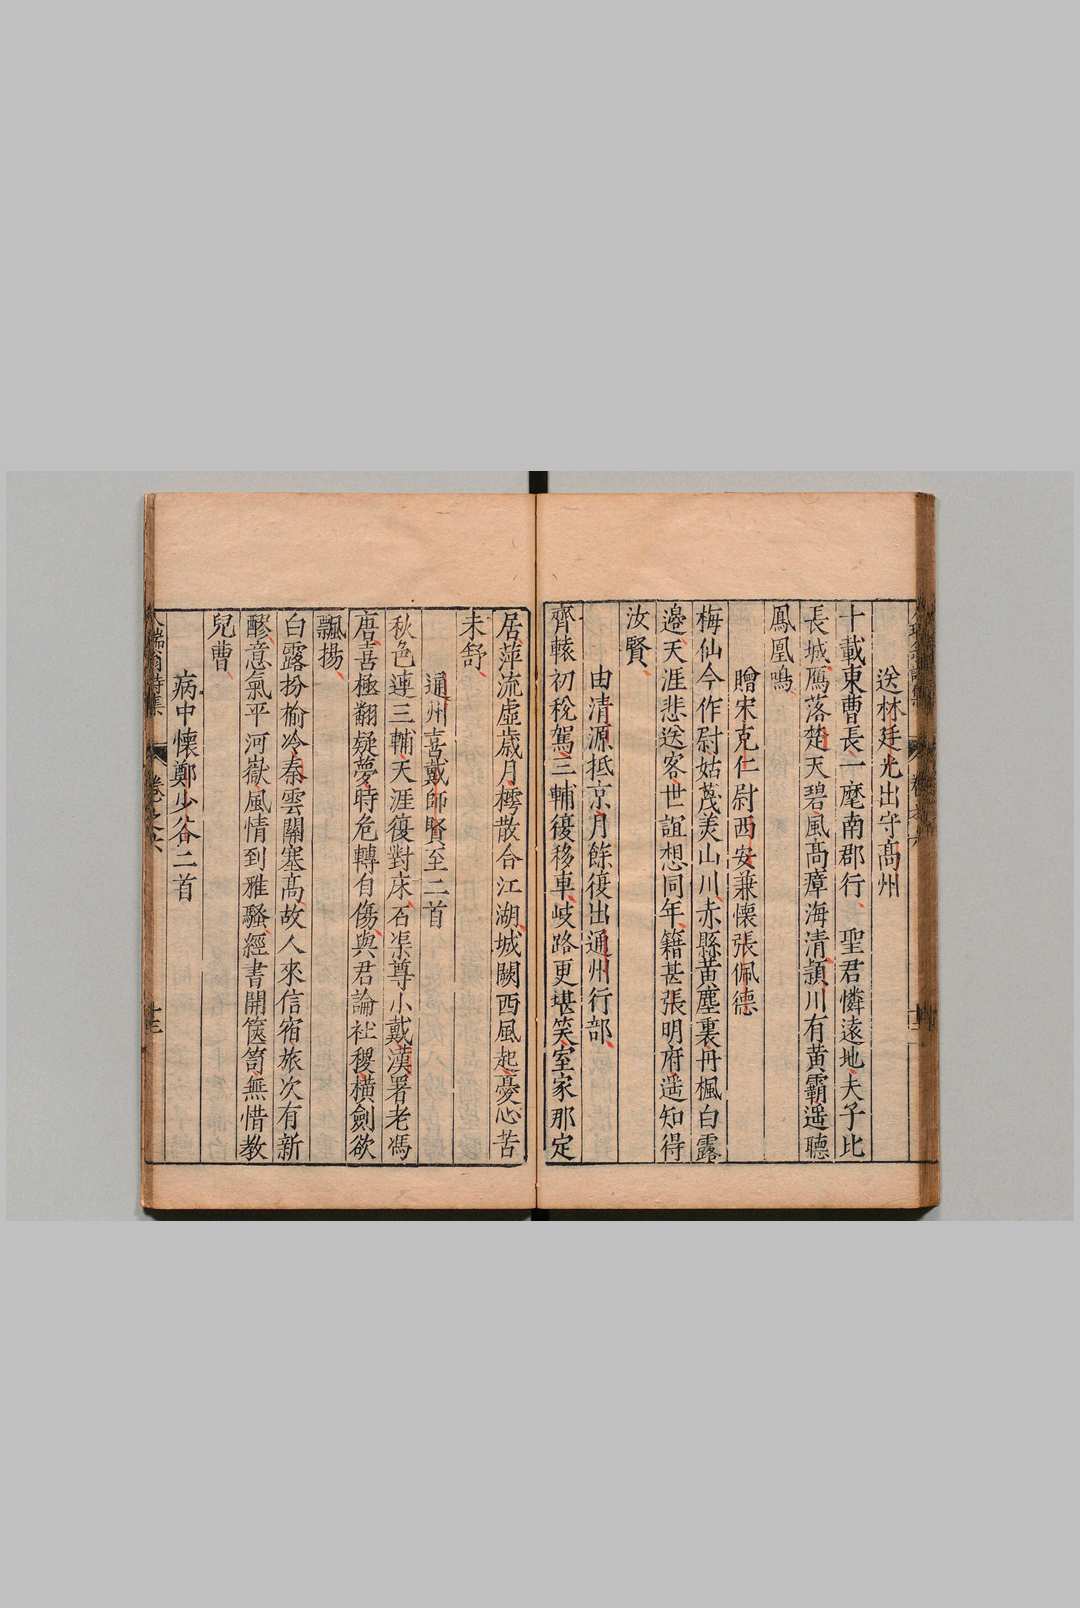 送林廷光出守高州
十載東曹長一麾南郡行聖君憐遠地夫子比
長城鴈落楚天碧風高瘴海清潁川有黃霸遥聽
鳳凰鳴
贈宋克仁尉西安兼懷張佩德
梅仙今作尉姑蔑羙山川赤縣黃塵裏丹楓白露
邉天涯悲送客世誼想同年籍甚張明府遥知得
汝賢
由清源抵京月餘復出通州行部
齊轅初稅駕三輔復移車岐路更堪笑室家那定
居萍流虛歲月樗散合江湖城闕西風起憂心苦
未舒
通州喜戴師賢至二首
秋色連三輔天涯復對床石渠尊小戴漢署老馮
唐喜極翻疑夢時危轉自傷與君論社稷橫劍欲
飄揚
白露枌榆冷秦雲關塞高故人來信宿旅次有新
醪意氣平河嶽風情到雅騷經書開篋笥無惜教
兒曹
病中懷鄭少谷二首
端翁詩集
卷之六
十三